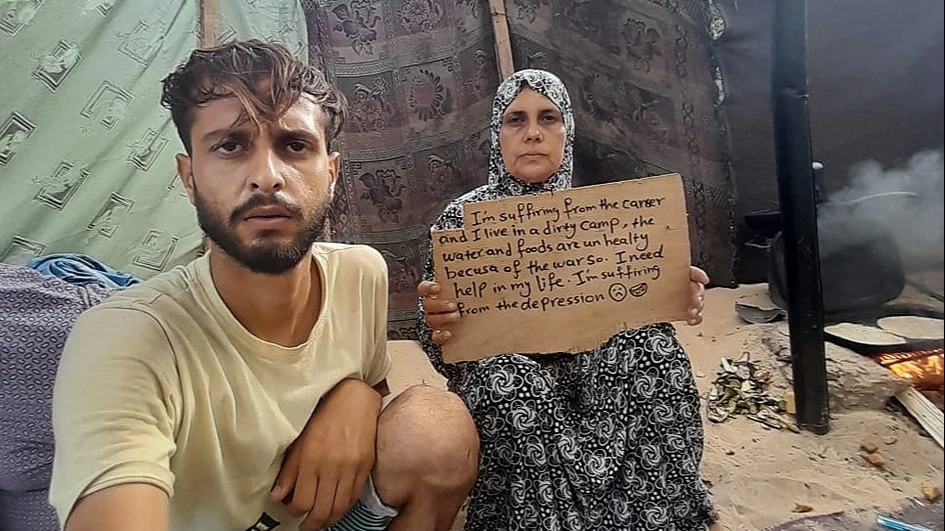 I'm suffiring from the canser
and I live in a dirty Camp, the
water and foods are un healty
becusa of the war so. I need
help in my life. I'm suffiring
from the depression